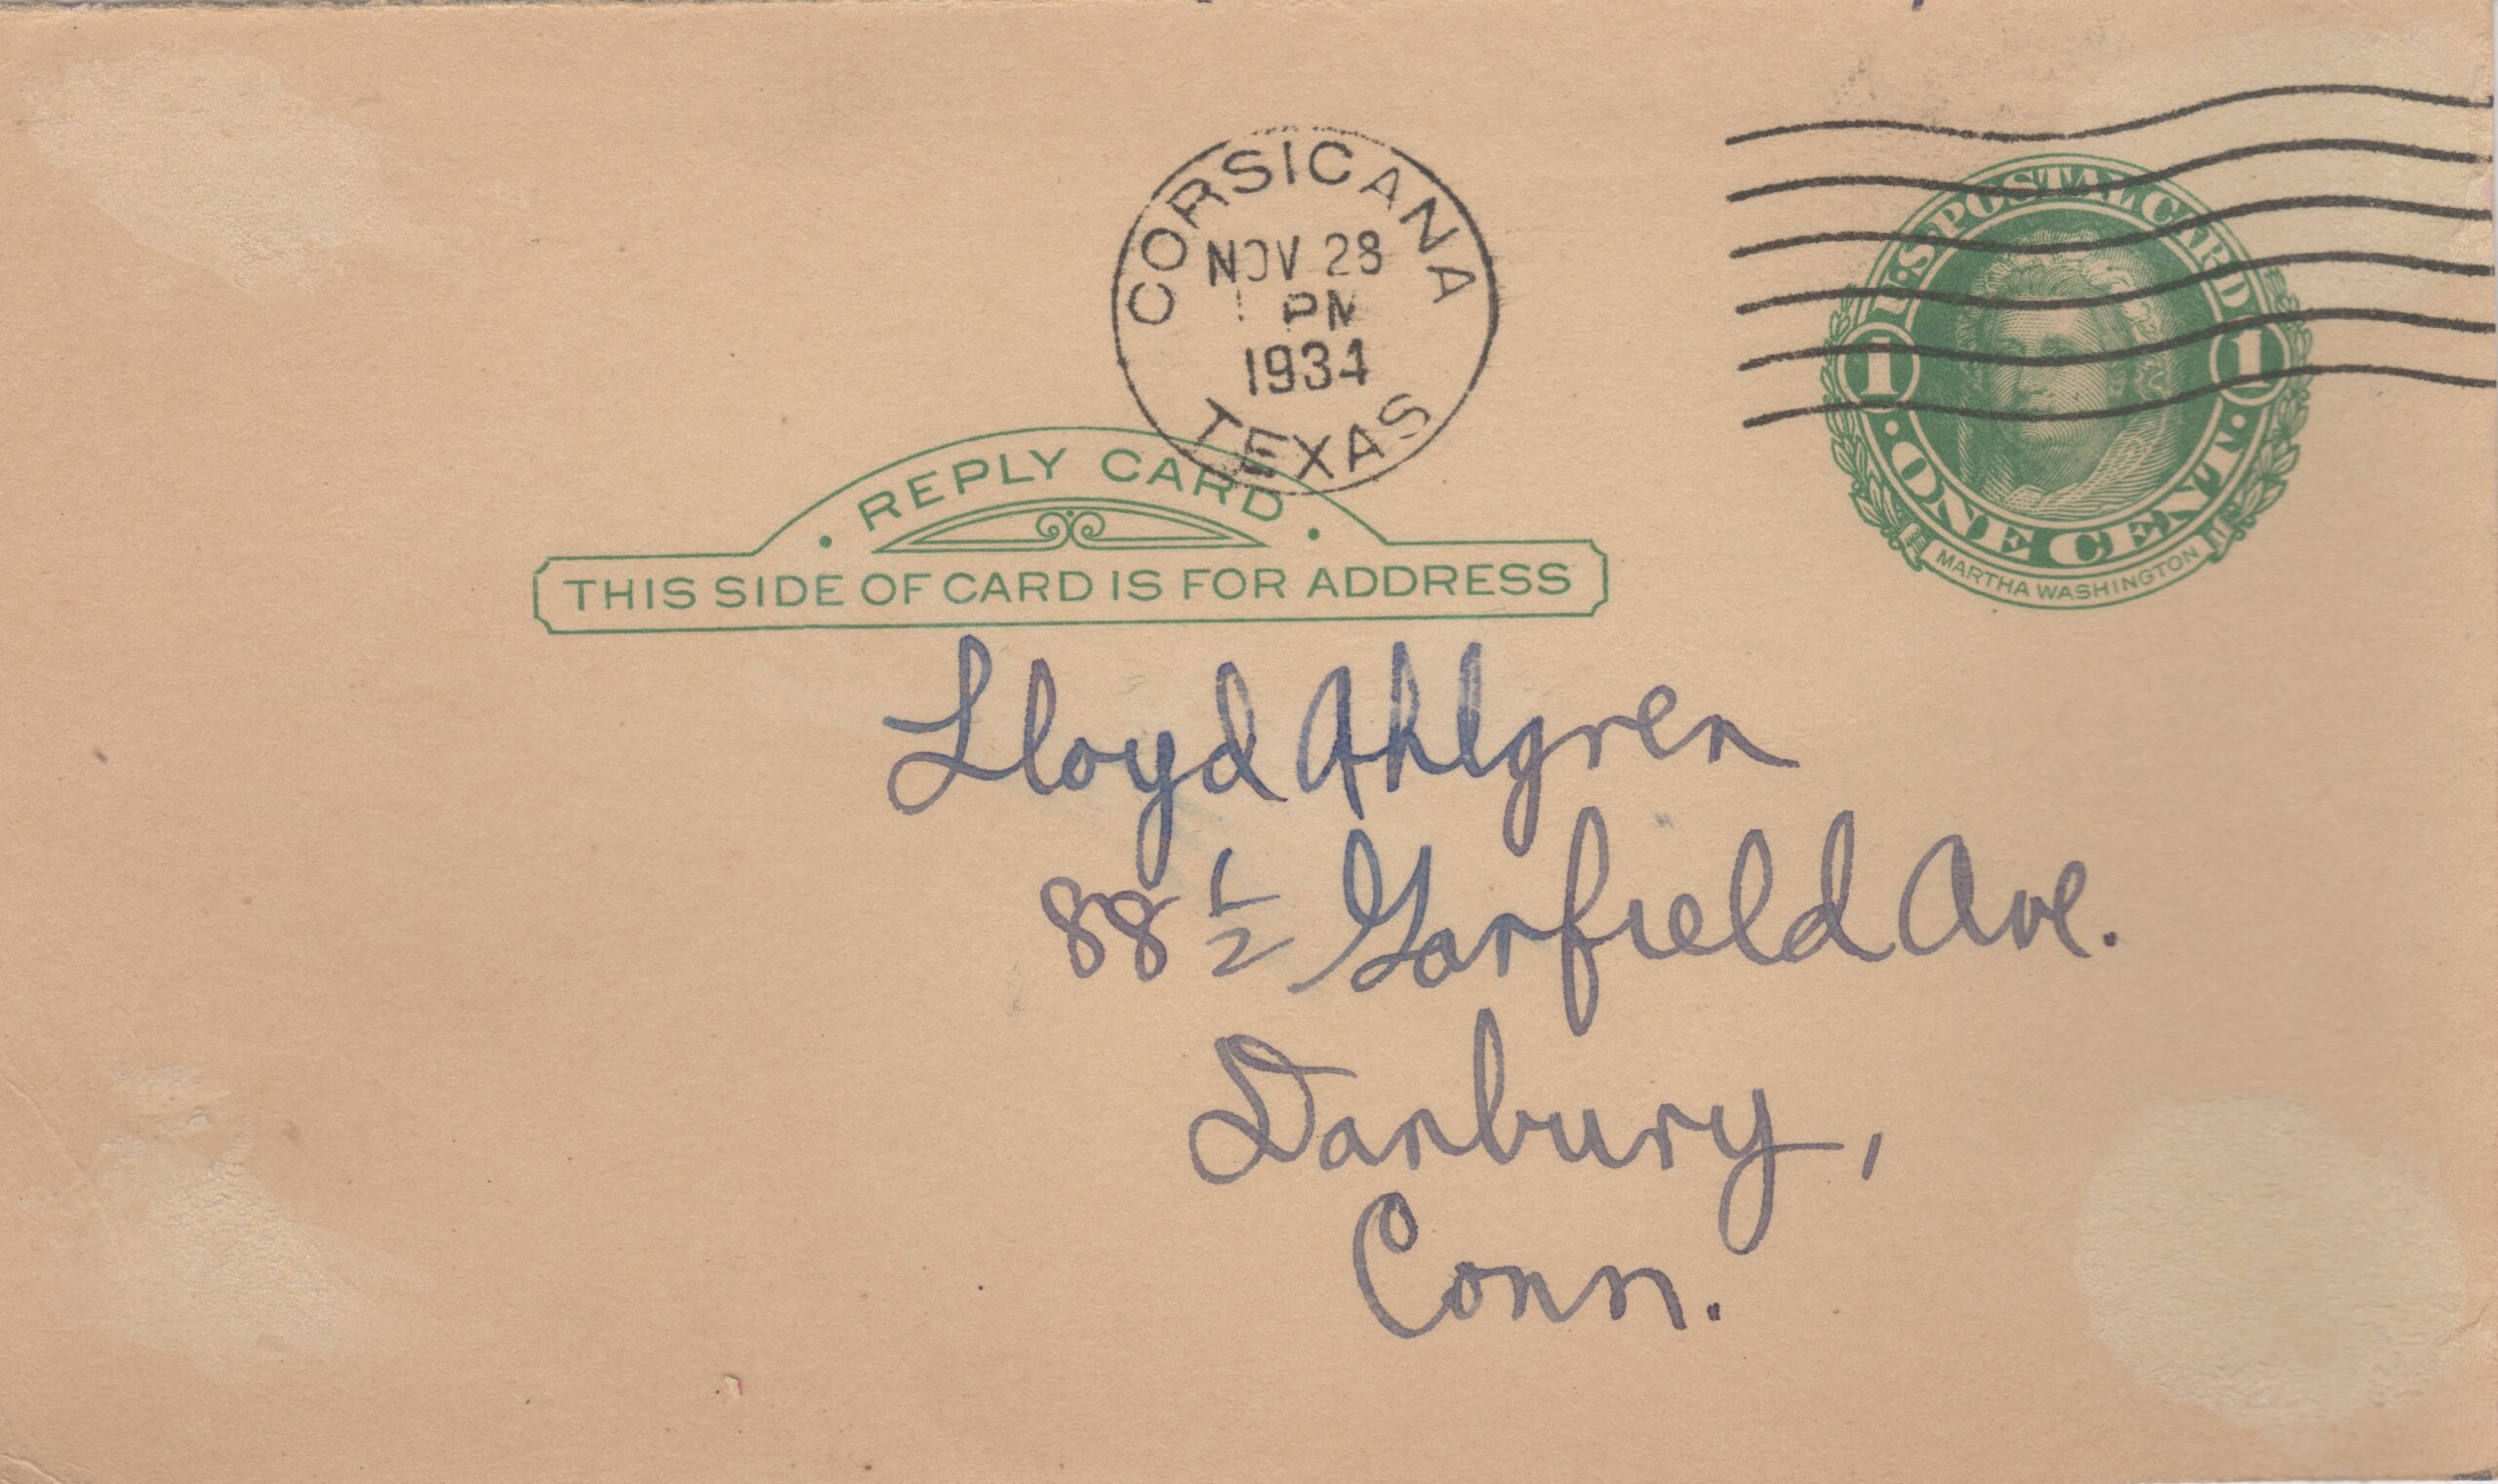 CORSICANA
NOV 28
1 PM
1934
TEXAS
U.S. POSTAL CARD
1 1
· ONE CENT ·
MARTHA WASHINGTON
· REPLY CARD ·
THIS SIDE OF CARD IS FOR ADDRESS
Lloyd Ahlgren
88 1/2 Garfield Ave.
Danbury,
Conn.